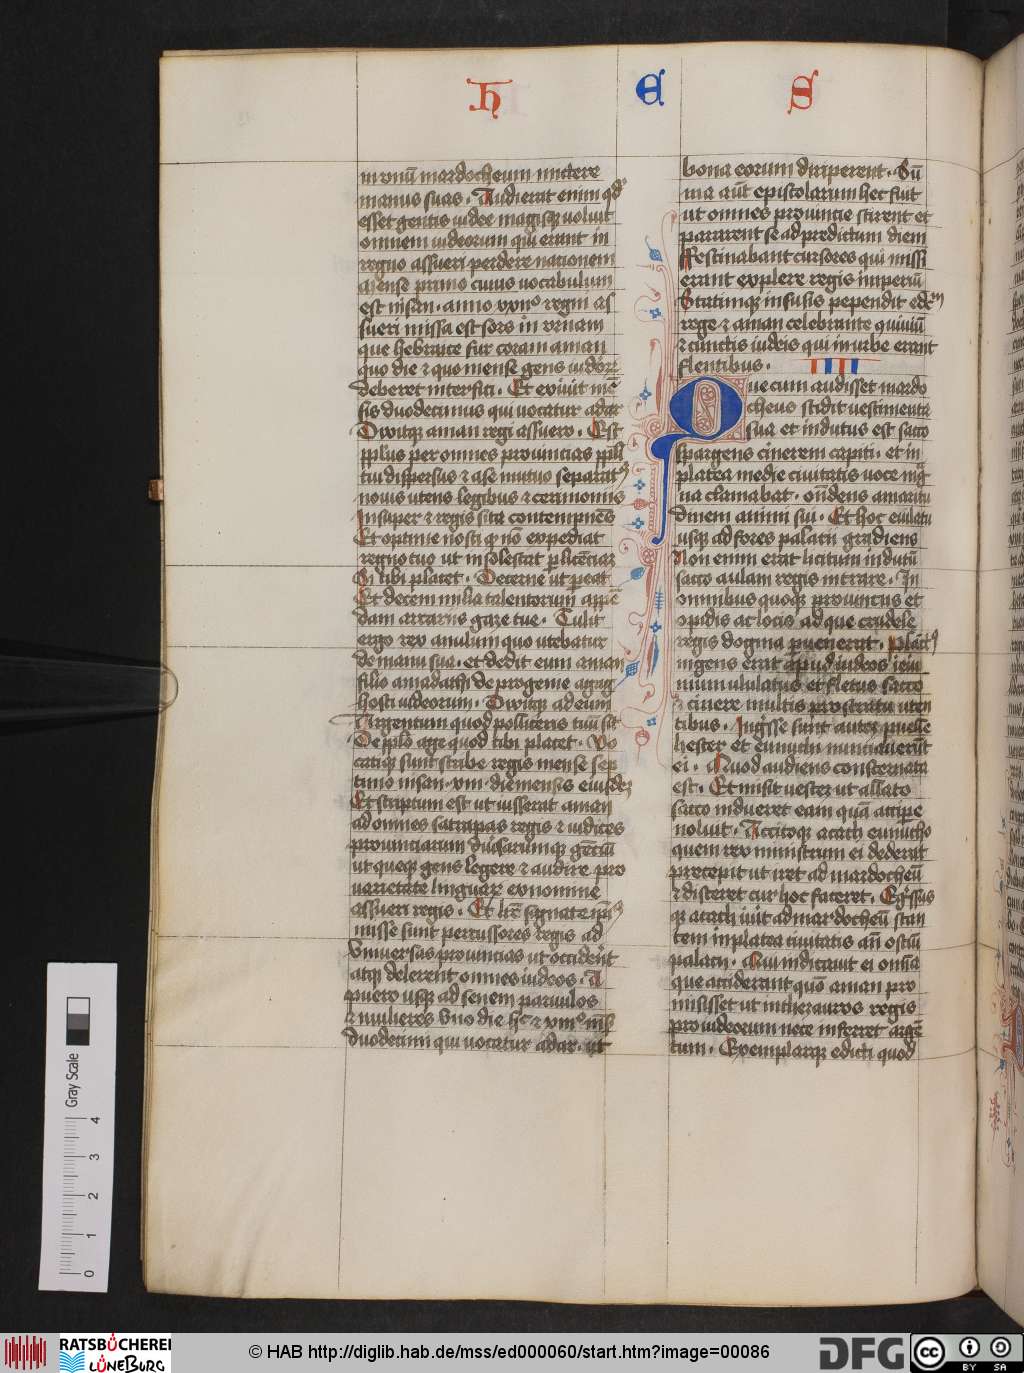 h E S
in vnū mardocheum mittere
manus suas. Audierat enim qd'
esset gentis iudee magisq voluit
omnem iudeorum qui erant in
regno assueri perdere nationem
Mense primo cuius vocabulum
est nisan. anno xxii° regni as
sueri missa est sors in vrnam
que hebraice fur coram aman
quo die et quo mense gens iudeor
deberet interfici. Et exiuit mē
sis duodecimus qui vocatur adar
Dixitque aman regi assuero. Est
pplus per omnes prouincias
tui dispersus et a se mutuo separat'
nouis utens legibus et cerimoniis
Insuper et regis scita contempnēs
Et optime nosti qr nō expediat
regno tuo ut insolescat
Si tibi placet. Decerne ut peat
Et decem milia talentorum appē
dam arcariis gaze tue. Tulit
ergo rex anulum quo utebatur
de manu sua. et dedit eum aman
filio amadathi de progenie agag
hosti iudeorum. Dixitq ad eum
Argentum quod polliceris tuū sit
De pplo age quod tibi placet. Vo
catiq sunt scribe regis mense
primo nisan. xiii. die mensis eiusdē
Et scriptum est ut iusserat aman
ad omnes satrapas regis et iudices
prouinciarum diusarumq gēciū
ut queq gens legere et audire pro
varietate linguar ex nomine
assueri regis. Et signate
misse sunt per cursores regis ad
vniuersas prouincias ut occident
atq delerent omnes iudeos. A
puero usq ad senem paruulos
et mulieres vno die
duodecimi qui vocatur adar. ut
bona eorum diriperent. Sū
ma aūt epistolarum hec fuit
ut omnes prouincie scirent et
pararent se ad predictum diem
Festinabant cursores qui missi
erant explere regis imperiū
Statimq in susis pependit edcm
rege et aman celebrante quiuiū
et cunctis iudeis qui in urbe erant
flentibus. IIII
Que cum audisset mardo
cheus scidit vestimenta
sua et indutus est sacco
spargens cinerem capiti. et in
platea medie ciuitatis voce mag
na clamabat. ondens amaritu
dinem animi sui. Et hoc eiulatu
usq ad fores palacii gradiens
Non enim erat licitum indutū
sacco aulam regis intrare. In
omnibus quoq prouinciis et
opidis ac locis ad que crudele
regis dogma puenerat. Planct'
ingens erat apud iudeos ieiu
nium ululatus et fletus sacco
et cinere multis pro stratu uten
tibus. Ingsse sunt autem puelle
hester et eunuchi nunciauerūt
ei. Quod audiens consternata
est. Et misit vestem ut ablato
sacco indueret eam quā accipe
noluit. Accitoq atach eunucho
quem rex ministrum ei dederat
precepit ut iret ad mardocheū
et disceret cur hoc faceret. Egssus
q atach iuit ad mardocheū stan
tem in platea ciuitatis an ostiū
palacii. Qui indicauit ei omnia
que acciderant quō aman pro
misisset ut in thezauros regis
pro iudeorum nece inferret argē
tum. Exemplarq edicti quod
Gray Scale
0 1 2 3 4
RATSBÜCHEREI LÜNEBURG
© HAB http://diglib.hab.de/mss/ed000060/start.htm?image=00086
DFG
cc BY SA